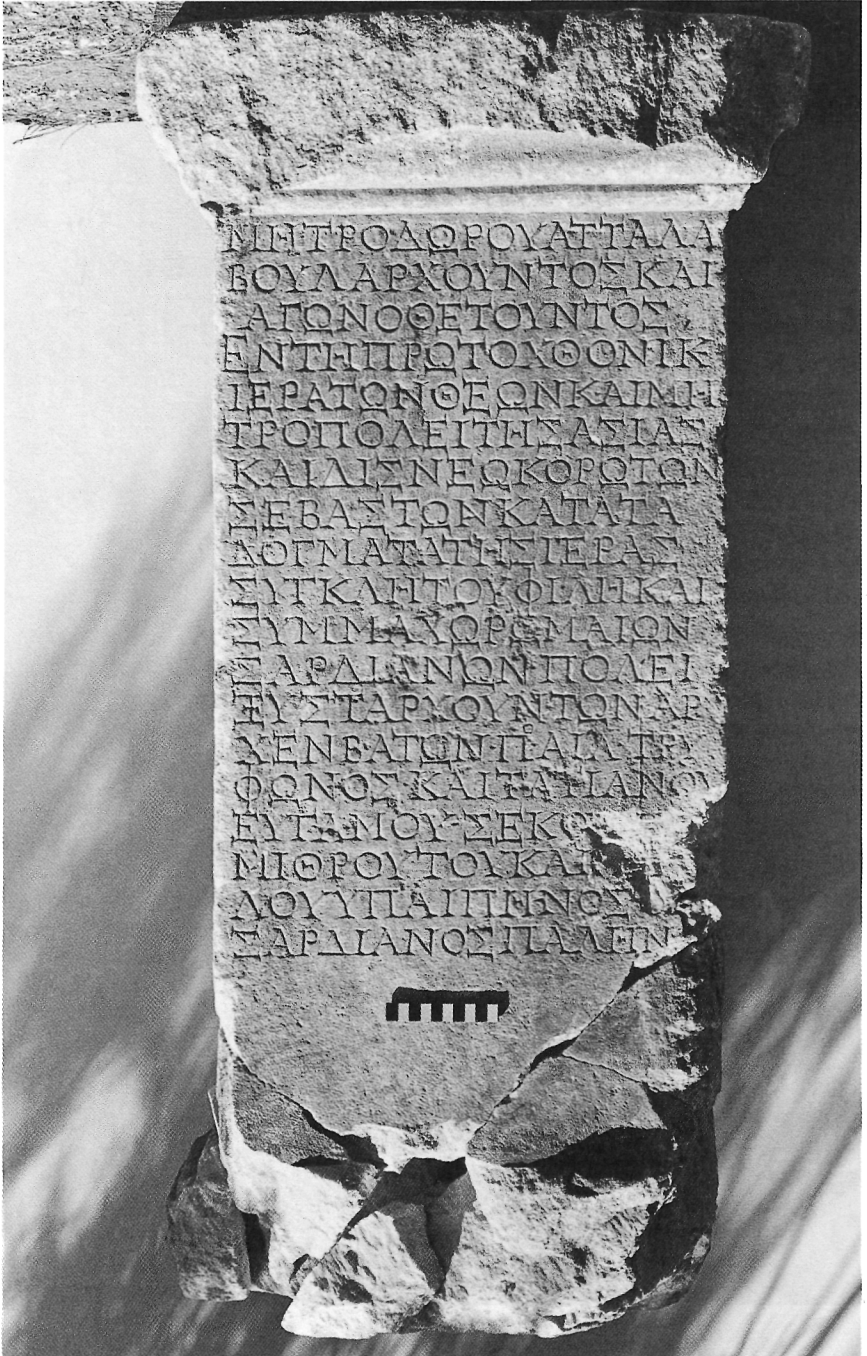 ΜΗΤΡΟΔΩΡΟΥΑΤΤΑΛΑ
ΒΟΥΛΑΡΧΟΥΝΤΟΣΚΑΙ
ΑΓΩΝΟΘΕΤΟΥΝΤΟΣ
ΕΝΤΗΠΡΩΤΟΧΘΟΝΙΚ
ΙΕΡΑΤΩΝΘΕΩΝΚΑΙΜΗ
ΤΡΟΠΟΛΕΙΤΗΣΑΣΙΑΣ
ΚΑΙΔΙΣΝΕΩΚΟΡΩΤΩΝ
ΣΕΒΑΣΤΩΝΚΑΤΑΤΑ
ΔΟΓΜΑΤΑΤΗΣΙΕΡΑΣ
ΣΥΓΚΛΗΤΟΥΦΙΛΗΚΑΙ
ΣΥΜΜΑΧΩΡΩΜΑΙΩΝ
ΣΑΡΔΙΑΝΩΝΠΟΛΕΙ
ΞΥΣΤΑΡΧΟΥΝΤΩΝΑΡ
ΧΕΝΒΑΤΩΝΠΟΑΙΛΤΡΥ
ΦΩΝΟΣΚΑΙΤΑΤΙΑΝΟΥ
ΕΥΤΑΜΟΥΣΕΚΟ
ΜΙΘΡΟΥΤΟΥΚΑΙ
ΛΟΥΥΠΑΙΠΗΝΟΣ
ΣΑΡΔΙΑΝΟΣΠΑΛΗΝ